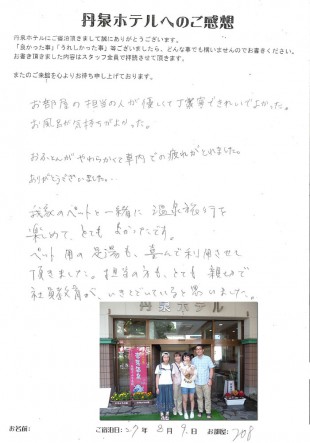 丹泉ホテルへのご感想
丹泉ホテルにご宿泊頂きまして誠にありがとうございます。
「良かった事」「うれしかった事」等ございましたら、どんな事でも構いませんのでお書きください。
お書き頂きました内容はスタッフ全員で拝読させて頂きます。
またのご来館を心よりお待ち申し上げております。
お部屋の担当の人が優しくて丁寧できれいでよかった。
お風呂が気持ちがよかった。
おふとんがやわらかくて車内での疲れがとれました。
ありがとうございました...
我家のペットと一緒に温泉旅行を
楽しめて、とてもよかったです。
ペット用の足湯も、喜んで利用させて
頂きました。担当の方も、とても親切で
社員教育が、いきとどいていると思いました。
丹泉ホテル
お名前:
ご宿泊日: 27年 8月 9日 お部屋: 708